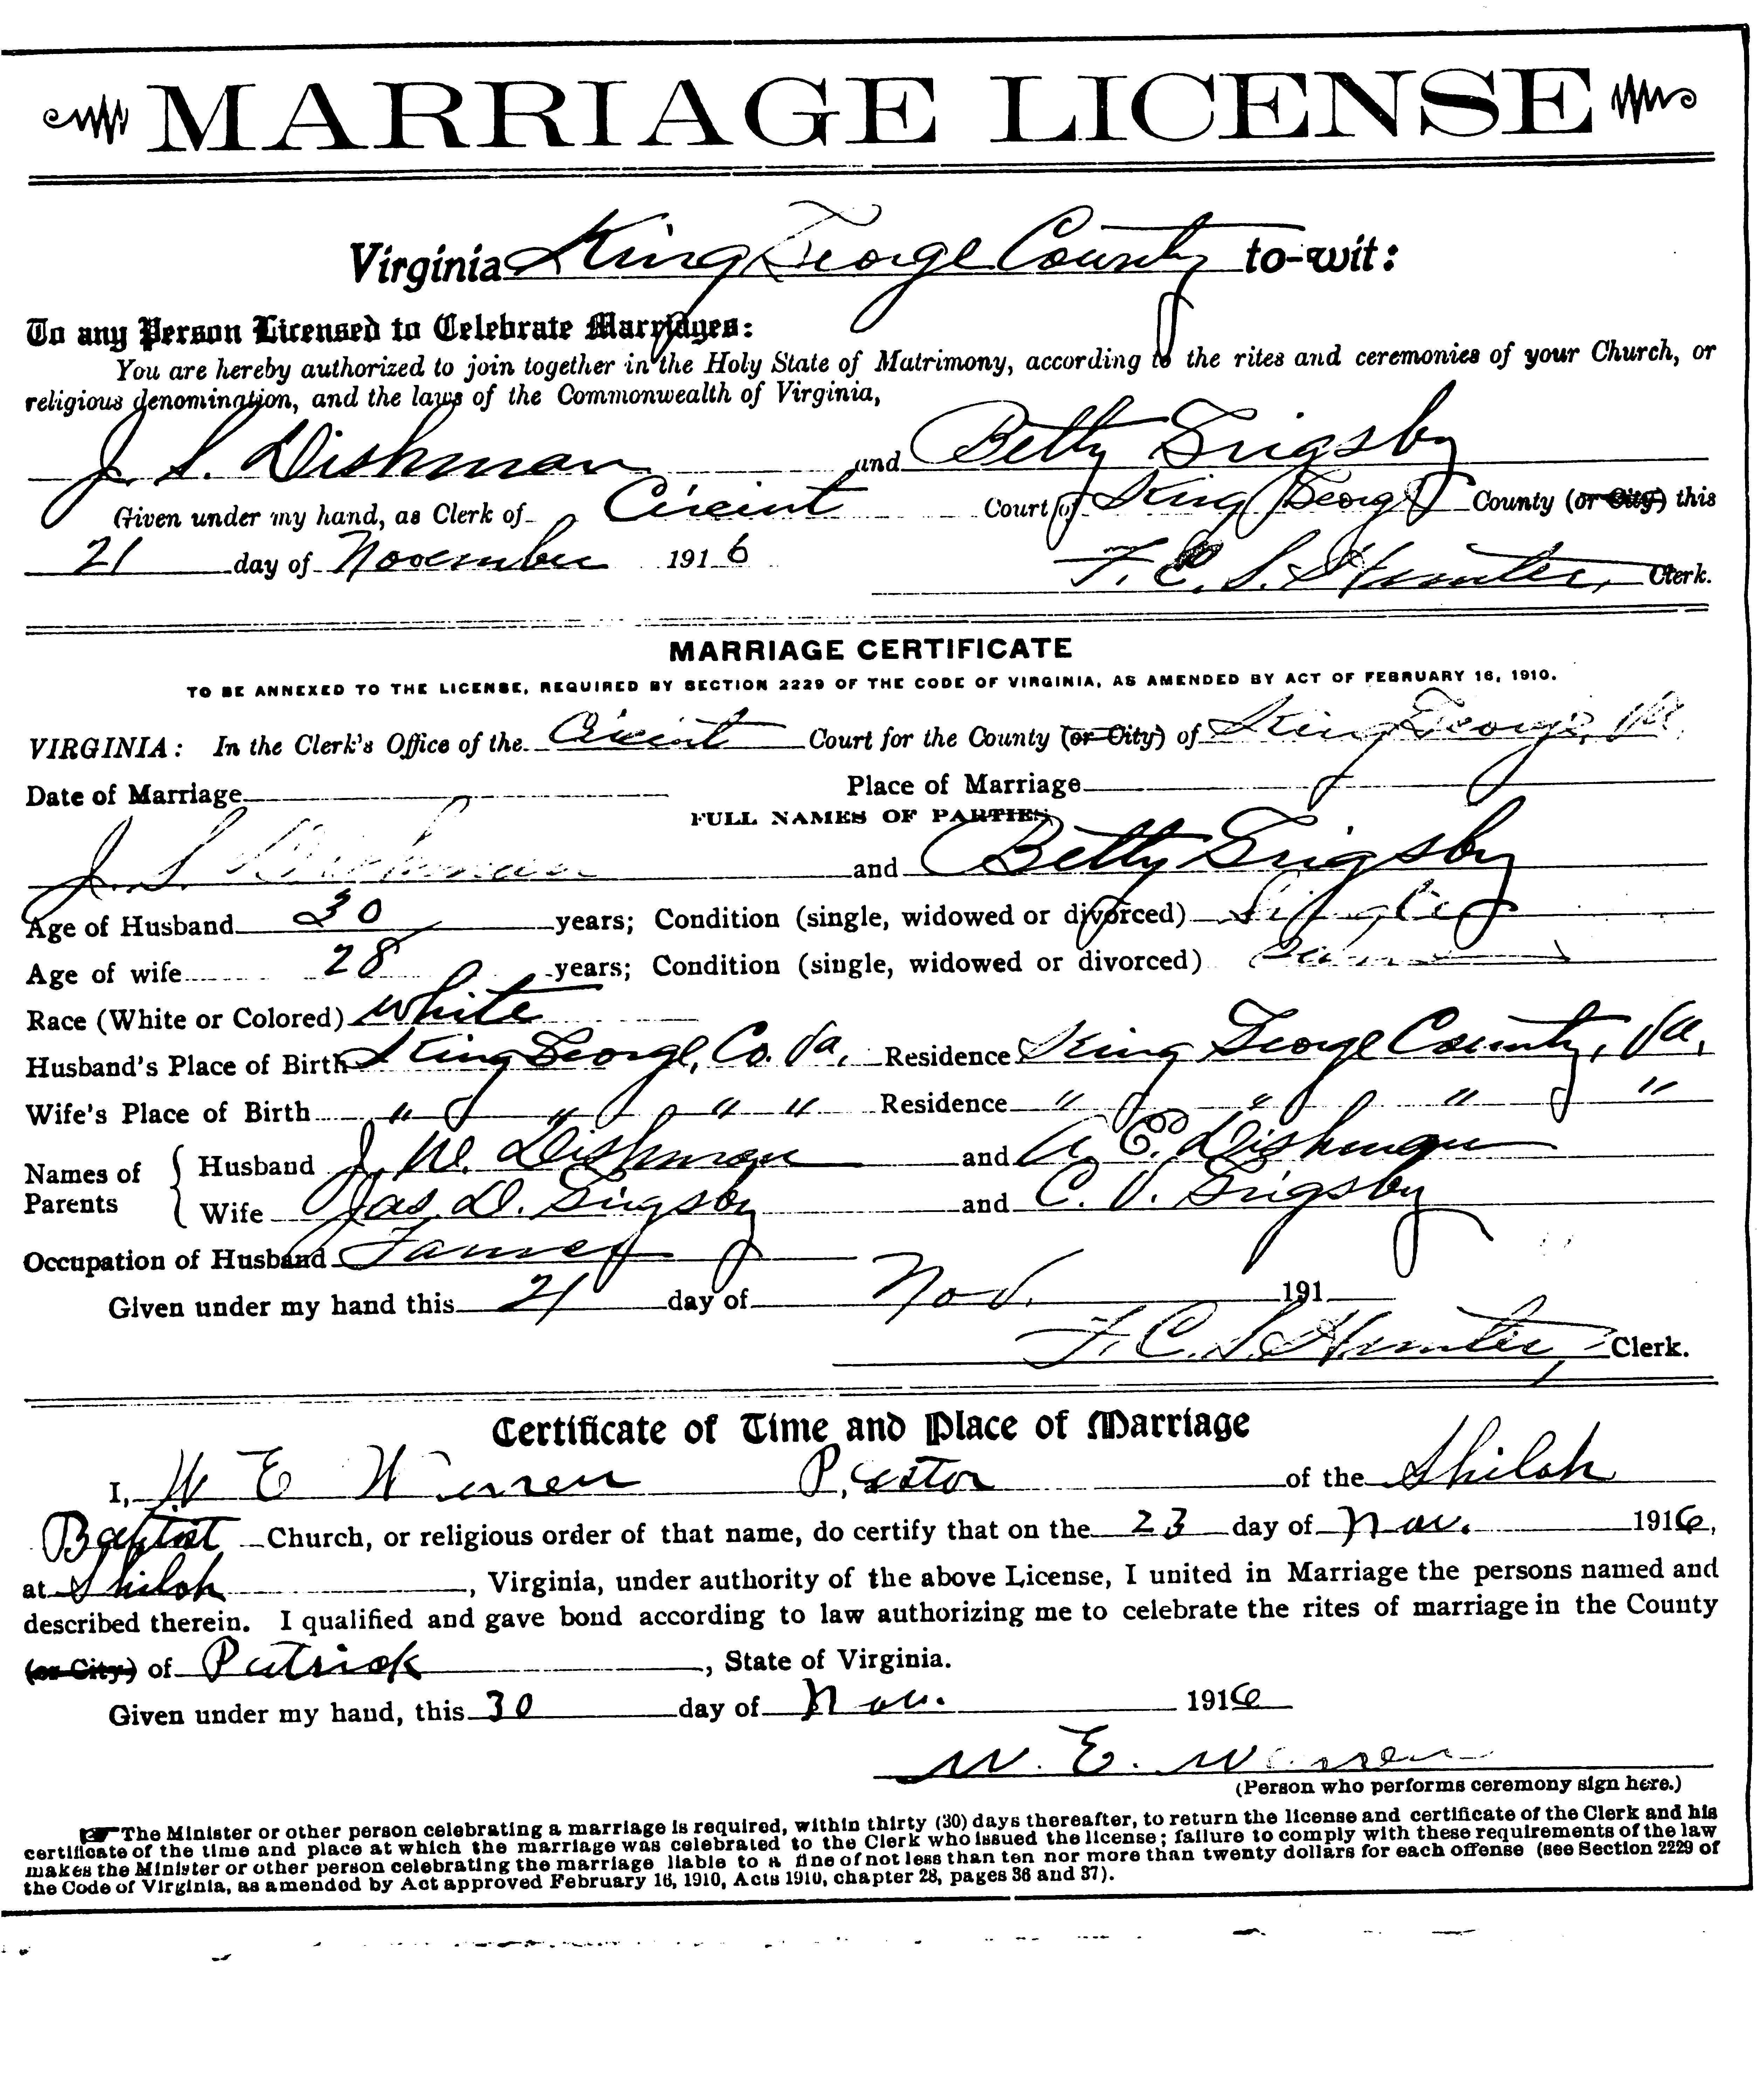 MARRIAGE LICENSE
Virginia King George County to-wit:
To any Person Licensed to Celebrate Marriages:
You are hereby authorized to join together in the Holy State of Matrimony, according to the rites and ceremonies of your Church, or
religious denomination, and the laws of the Commonwealth of Virginia,
J. S. Dishman and Betty Grigsby
Given under my hand, as Clerk of Circuit Court of King George County (or City) this
21 day of November 1916
F. C. S. Hunter, Clerk.
MARRIAGE CERTIFICATE
TO BE ANNEXED TO THE LICENSE, REQUIRED BY SECTION 2229 OF THE CODE OF VIRGINIA, AS AMENDED BY ACT OF FEBRUARY 16, 1910.
VIRGINIA: In the Clerk's Office of the Circuit Court for the County (or City) of King George, Va.
Date of Marriage Place of Marriage
FULL NAMES OF PARTIES
J. S. Dishman and Betty Grigsby
Age of Husband 30 years; Condition (single, widowed or divorced) Single
Age of wife 28 years; Condition (single, widowed or divorced)
Race (White or Colored) White
Husband's Place of Birth King George, Co. Va. Residence King George County, Va.
Wife's Place of Birth " " " " Residence " " " "
Names of Parents Husband J. W. Dishman and A. E. Dishman
Wife Jas. D. Grigsby and C. V. Grigsby
Occupation of Husband Farmer
Given under my hand this 21 day of Nov. 191
F. C. S. Hunter, Clerk.
Certificate of Time and Place of Marriage
I, W E Warren Pastor of the Shiloh
Baptist Church, or religious order of that name, do certify that on the 23 day of Nov. 1916,
at Shiloh, Virginia, under authority of the above License, I united in Marriage the persons named and
described therein. I qualified and gave bond according to law authorizing me to celebrate the rites of marriage in the County
(or City) of Patrick, State of Virginia.
Given under my hand, this 30 day of Nov. 1916
W. E. Warren
(Person who performs ceremony sign here.)
The Minister or other person celebrating a marriage is required, within thirty (30) days thereafter, to return the license and certificate of the Clerk and his
certificate of the time and place at which the marriage was celebrated to the Clerk who issued the license; failure to comply with these requirements of the law
makes the Minister or other person celebrating the marriage liable to a fine of not less than ten nor more than twenty dollars for each offense (see Section 2229 of
the Code of Virginia, as amended by Act approved February 16, 1910, Acts 1910, chapter 28, pages 36 and 37).